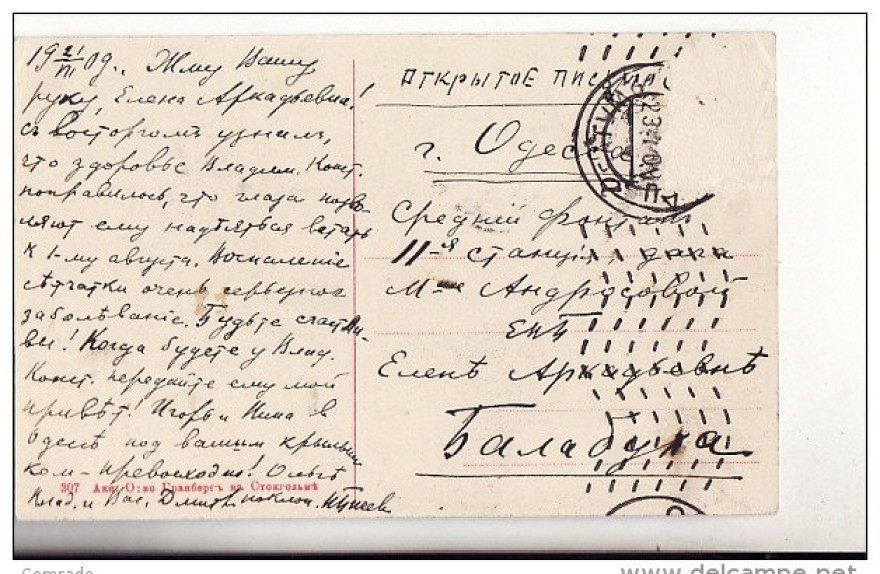 19 21/VII 09. Жму Вашу
руку, Елена Аркадьевна!
Съ восторгомъ узналъ,
что здоровье Владим. Конст.
поправилось, что глаза позво-
ляютъ ему надѣяться встать
къ 1-му августа. Воспаленіе
сѣтчатки очень серьезное
заболѣваніе. Будьте счастли-
вы! Когда будете у Влад.
Конст. передайте ему мой
привѣтъ! Игорь и Нина въ
Одессѣ под вашим крылыш-
ком - превосходно! Ольгѣ
Влад. и Вас. Дмитр. поклон.
307 Акц. О-во Гранбергъ въ Стокгольмѣ
ОТКРЫТОЕ ПИСЬМО
г. Одесса
Средній фонтанъ
11-я станція, дача
М-me Андросовой
ЕПБ
Еленѣ Аркадьевнѣ
Балабуха
Comrade
www.delcampe.net